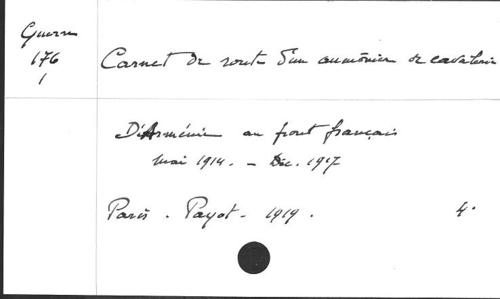 Guerre
176
1
Carnet de route d'un aumônier de cavalerie
D'Arménie au front français
Mai 1914. - Déc. 1917
Paris. Payot. 1919.
4.